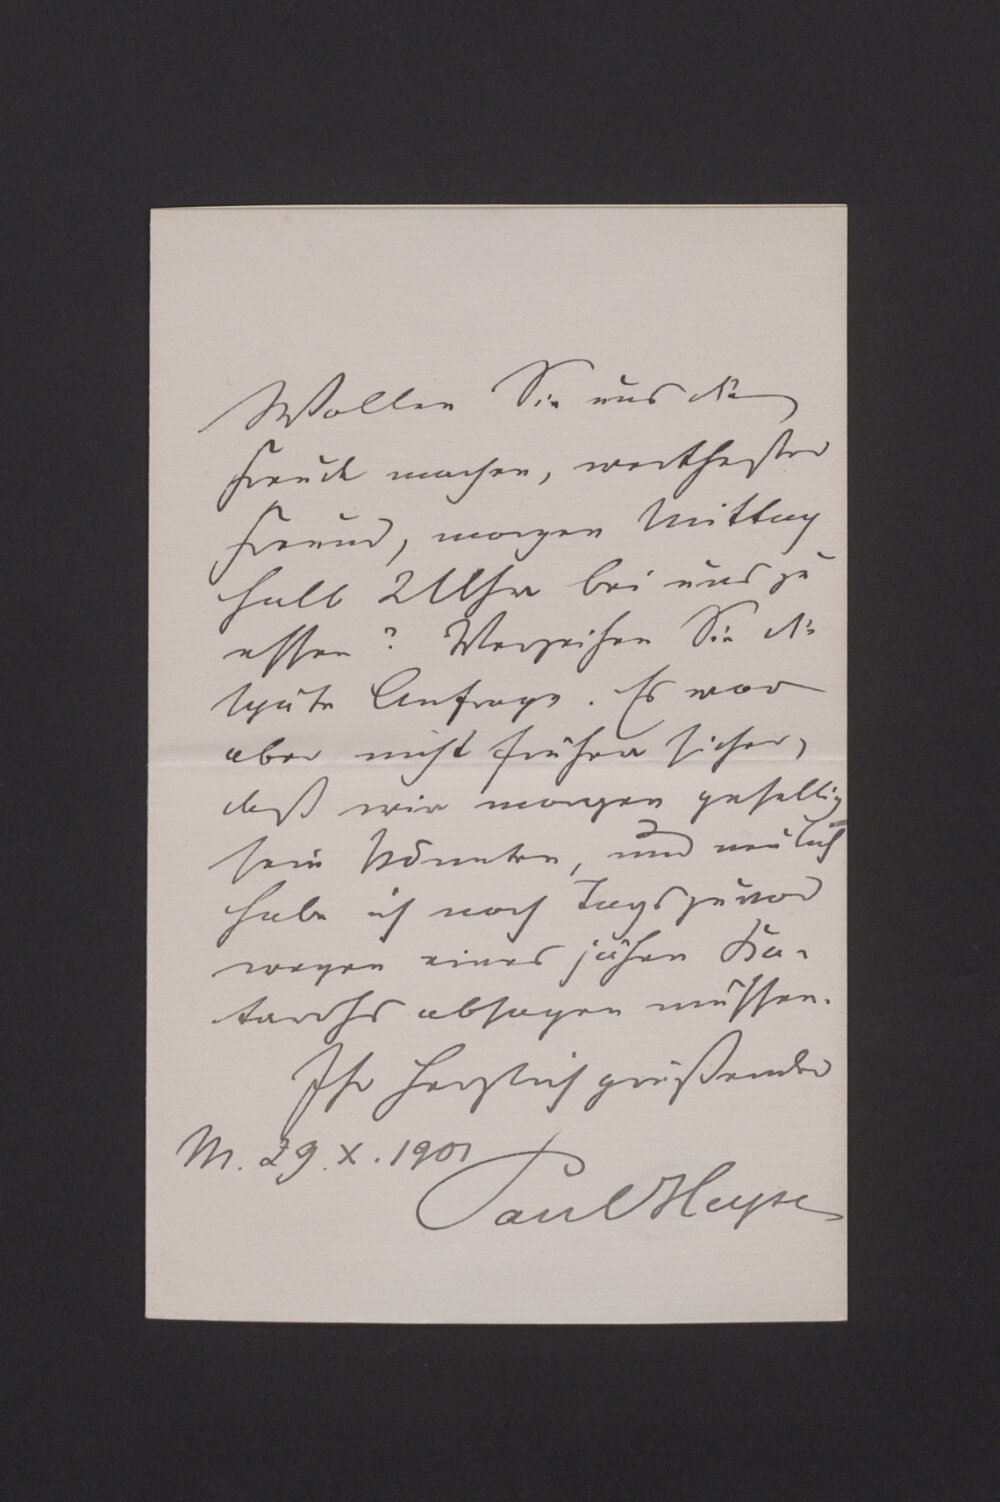 Wollen Sie uns die
Freude machen, werthester
Freund, morgen Mittag
halb 2 Uhr bei uns zu
essen? Verzeihen Sie die
späte Anfrage. Es war
aber nicht früher sicher,
daß wir morgen gesellig
sein könnten, und neulich
habe ich noch Tags zuvor
wegen eines jähen Ka-
tarrhs absagen müssen.
Ihr herzlich grüßender
M. 29. X. 1901
Paul Heyse